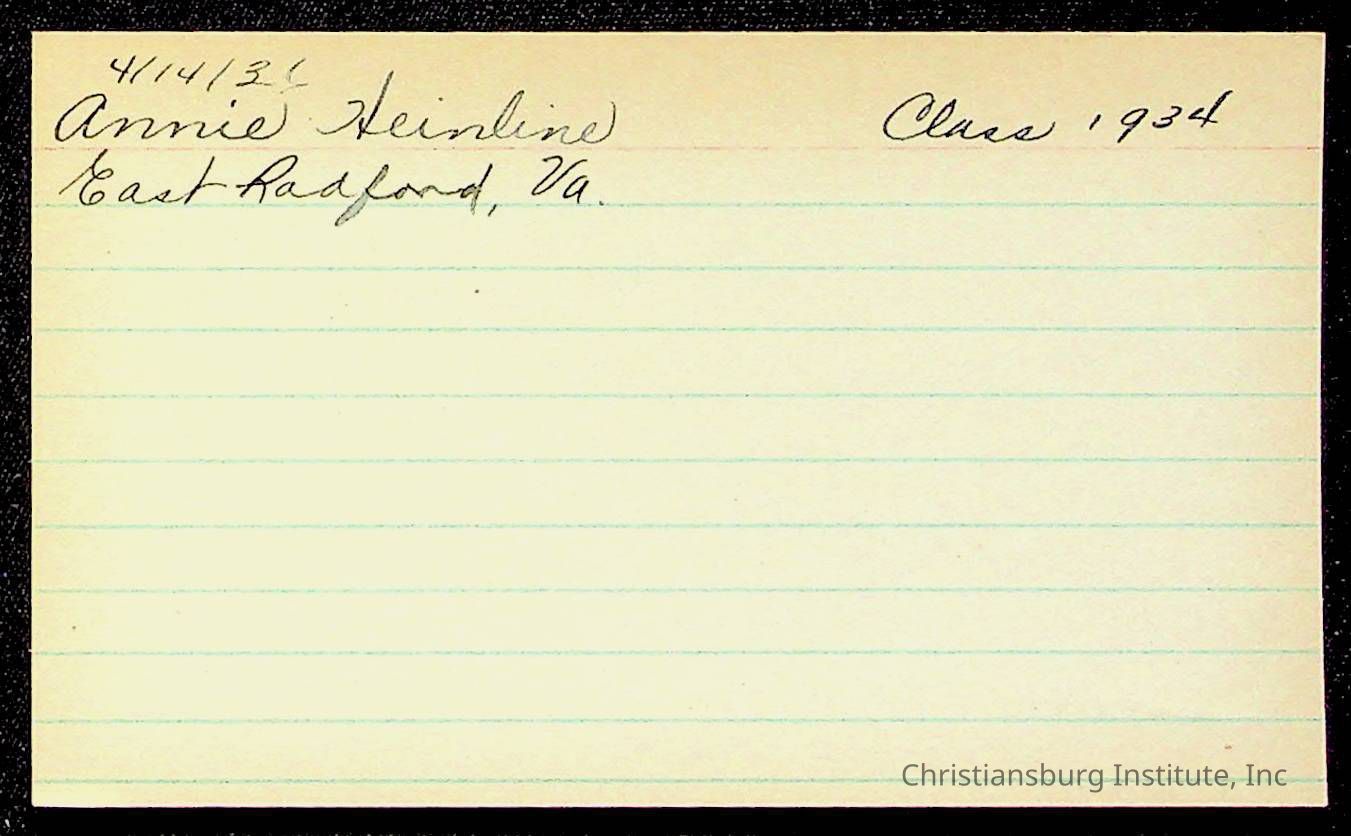 4/14/31
Annie Heinline
Class 1934
East Radford, Va.
Christiansburg Institute, Inc